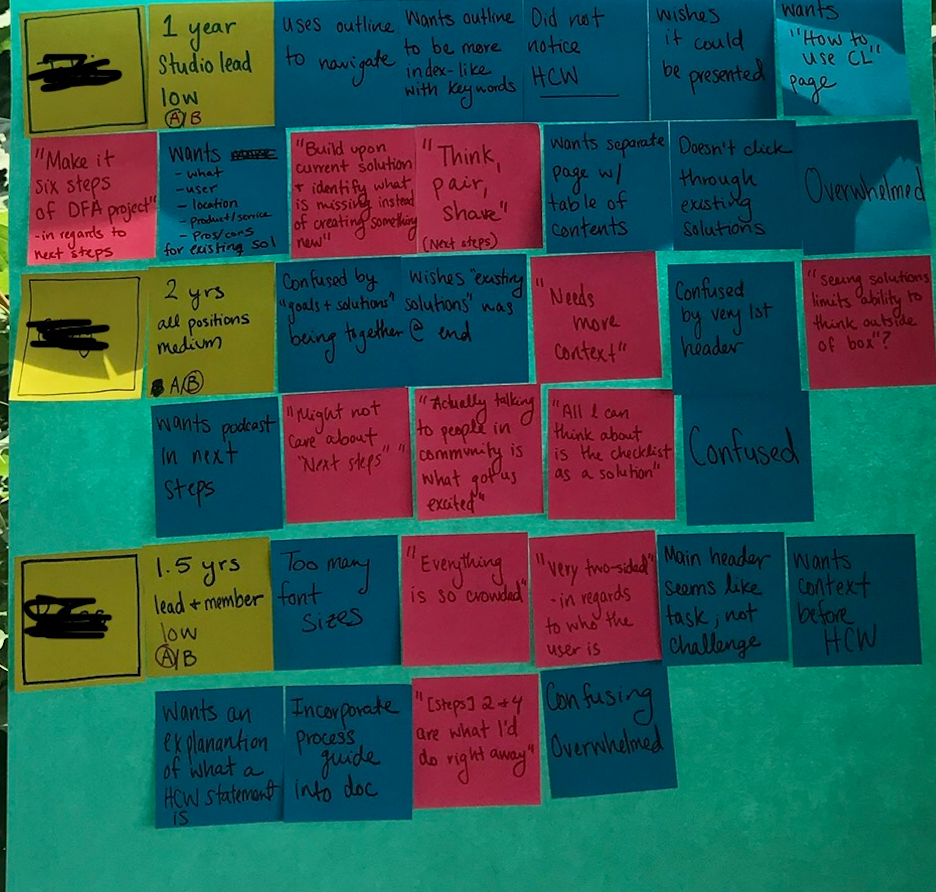 1 year
Studio lead
low
A/B
uses outline
to navigate
Wants outline
to be more
index-like
with keywords
Did not
notice
HCW
wishes
it could
be presented
wants
"How to
use CL"
page
"Make it
six steps
of DFA project"
-in regards to
next steps
wants
- what
- user
- location
- Product/service
- Pros/cons
for existing sol
"Build upon
current solution
+ identify what
is missing instead
of creating something
new"
"Think,
pair,
share"
(Next steps)
Wants separate
page w/
table of
contents
Doesn't click
through
existing
solutions
Overwhelmed
2 yrs
all positions
medium
A/B
Confused by
"goals + solutions"
being together
Wishes "existing
solutions" was
@ end
"Needs
more
context"
Confused
by very 1st
header
"seeing solutions
limits ability to
think outside
of box"?
wants podcast
in next
steps
"Might not
care about
"Next steps" "
"Actually talking
to people in
community is
what got us
excited"
"All I can
think about
is the checklist
as a solution"
Confused
1.5 yrs
lead + member
low
A/B
Too many
font
sizes
"Everything
is so crowded"
"very two-sided"
- in regards
to who the
user is
Main header
seems like
task, not
challenge
wants
context
before
HCW
Wants an
explanantion
of what a
HCW statement
is
Incorporate
process
guide
into doc
"[Steps] 2 + 4
are what I'd
do right away"
Confusing
Overwhelmed